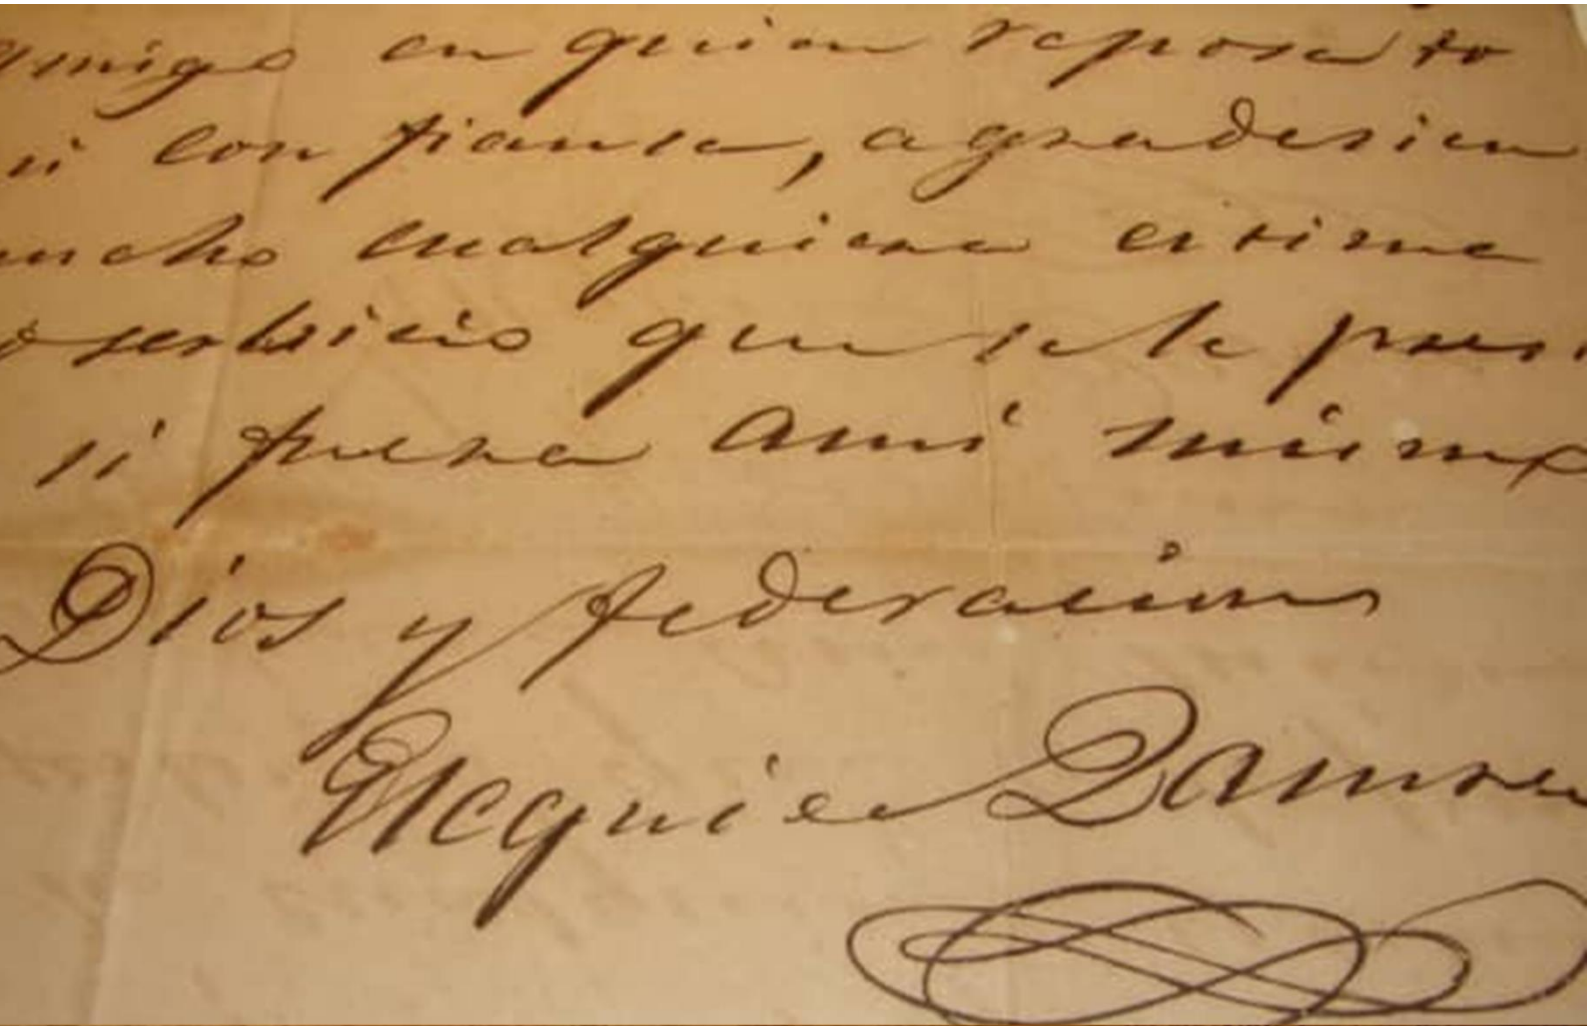 amigo en quien reposa to
si confiansa, agradesien
mucho cualquiera estima
o serbicio que se le pres
si fuera a mi mismo
Dios y federacion
Esequiel Zamora